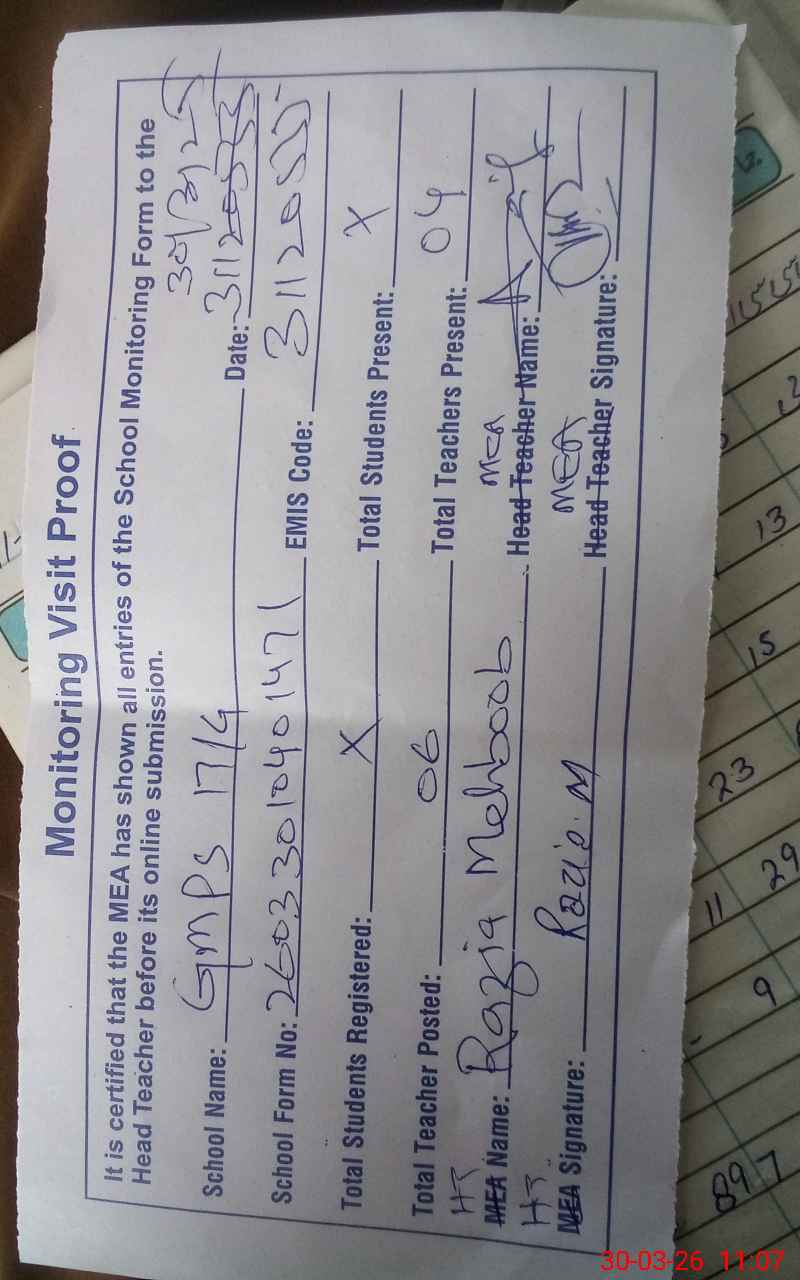 Monitoring Visit Proof
It is certified that the MEA has shown all entries of the School Monitoring Form to the
Head Teacher before its online submission.
School Name: GMPS 17/G Date:
School Form No: 26033010401471 EMIS Code: 31120555
Total Students Registered: X Total Students Present: X
Total Teacher Posted: 06 Total Teachers Present: 04
HT MEA
MEA Name: Razia Mehboob Head Teacher Name:
HT MEA
MEA Signature: Razia.M Head Teacher Signature:
13
15
23
11 29
9
897
30-03-26 11:07